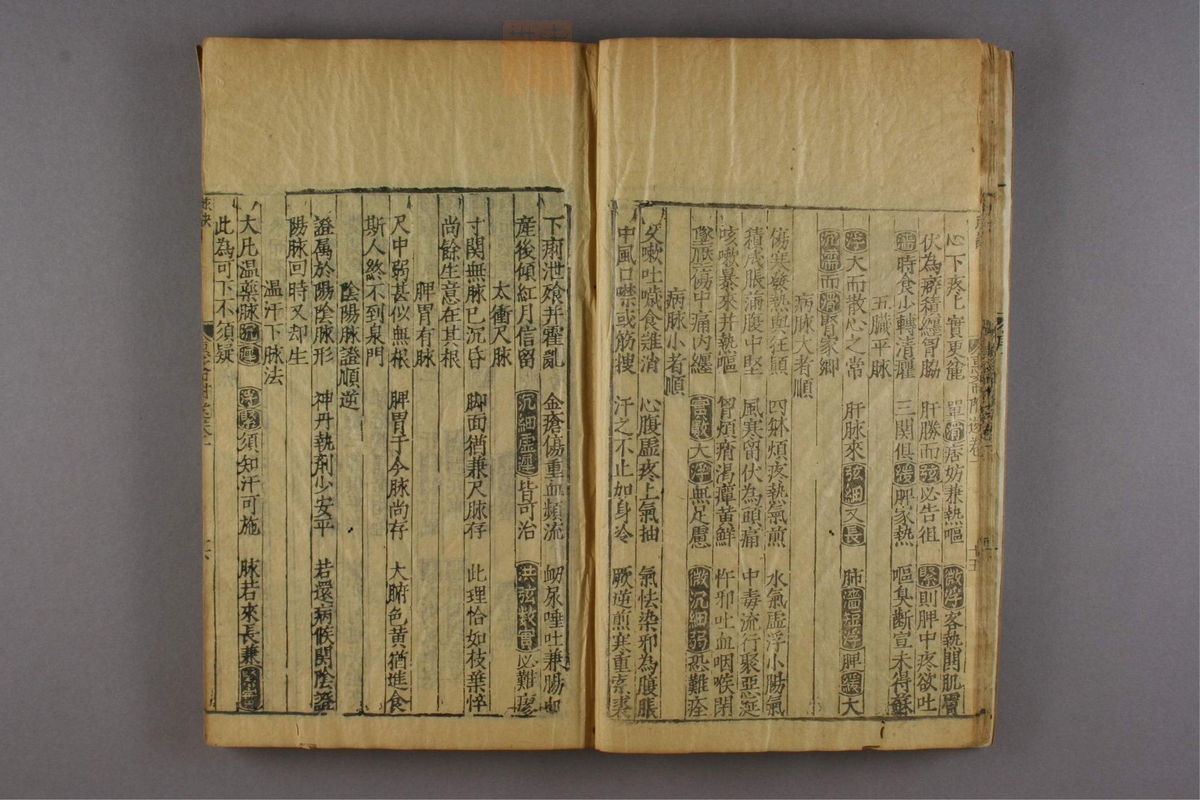 心下疼 實夏食龍 單滑痞妨兼熱嘔 微浮客熱開肌膚
伏為癖積纏胃脇 肝勝而弦必告徂 緊則脾中疼欲吐
濇時食少轉清癯 三關俱緩脾家熱 嘔臭斷宣本得蘇
五臟平脉
浮大而散心之常 肝脉來弦細又長 肺濇短浮脾緩大
沉濡而滑腎家鄉
病脉大者順
傷寒發熱與狂顛 四躰煩疼熱氣煎 水氣虛浮小腸氣
積成脹滿腹中堅 風寒留伏為頭痛 中毒流行聚惡涎
咳嗽暴來并熱嘔 胃煩痟渴癉黃鮮 忤邪吐血咽喉閉
墜脹傷中痛內纏 實數大浮無足慮 微沉細弱恐難痊
病脉小者順
久嗽吐噦食難消 心腹虛疼上氣抽 氣怯染邪為腹脹
中風口噤或筋搜 汗之不止如身冷 厥逆煎寒重索裘
下痢泄飱并霍亂 金瘡傷重血頻流 衂尿唾吐兼腸血
產後傾紅月信留 沉細虛遲皆可治 洪弦数實必難瘳
太衝尺脉
寸關無脉已沉昏 脚面猶兼尺脉存 此理恰如枝葉悴
尚餘生意在其根
脾胃有脉
尺中弱甚似無根 脾胃于今脉尚存 大腑色黃猶進食
斯人終不到泉門
陰陽脉證順逆
證属於陽陰脉形 神丹執劑少安平 若還病候関陰證
陽脉回時又却生
温汗下脉法
大凡温藥脉沉遲 浮緊須知汗可施 脉若來長兼緊實
此為可下不須疑